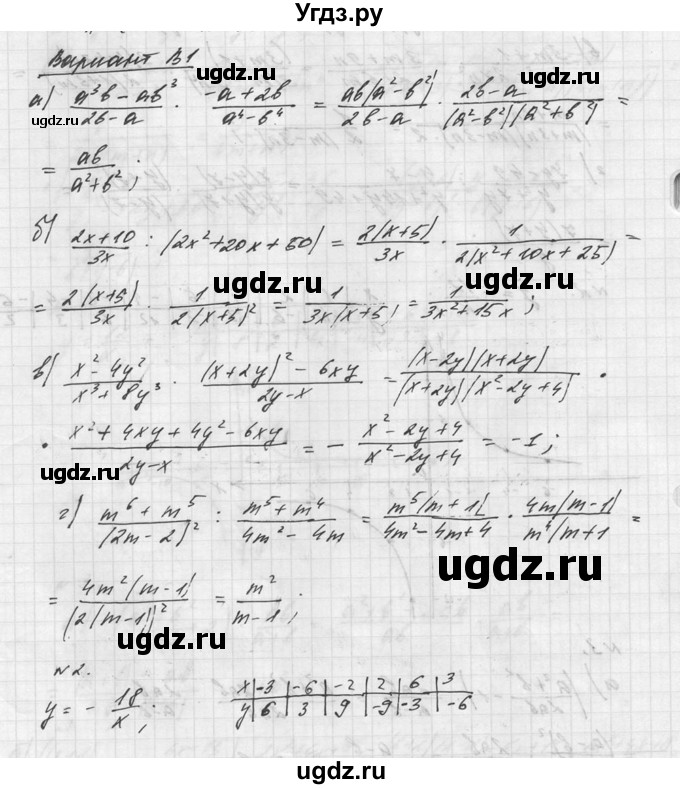 Угдз.ру
Вариант В1
а) (a³b - ab³)/(2b - a) · (-a + 2b)/(a⁴ - b⁴) = (ab(a² - b²))/(2b - a) · (2b - a)/((a² - b²)(a² + b²)) =
ugdz.ru
= ab/(a² + b²);
ugdz.ru
б) (2x + 10)/3x : (2x² + 20x + 50) = 2(x + 5)/3x · 1/(2(x² + 10x + 25)) =
ugdz.ru
= 2(x + 5)/3x · 1/(2(x + 5)²) = 1/(3x(x + 5)) = 1/(3x² + 15x);
ugdz.ru
в) (x² - 4y²)/(x³ + 8y³) · ((x + 2y)² - 6xy)/(2y - x) = ((x - 2y)(x + 2y))/((x + 2y)(x² - 2y + 4)) ·
ugdz.ru
· (x² + 4xy + 4y² - 6xy)/(2y - x) = - (x² - 2y + 4)/(x² - 2y + 4) = -1;
ugdz.ru
г) (m⁶ + m⁵)/(2m - 2)² : (m⁵ + m⁴)/(4m² - 4m) = m⁵(m + 1)/(4m² - 4m + 4) · 4m(m - 1)/(m⁴(m + 1) =
ugdz.ru
= 4m²(m - 1)/(2(m - 1))² = m²/(m - 1);
ugdz.ru
№2.
y = - 18/x;
x | -3 | -6 | -2 | 2 | 6 | 3
y | 6 | 3 | 9 | -9 | -3 | -6
ugdz.ru
ugdz.ru